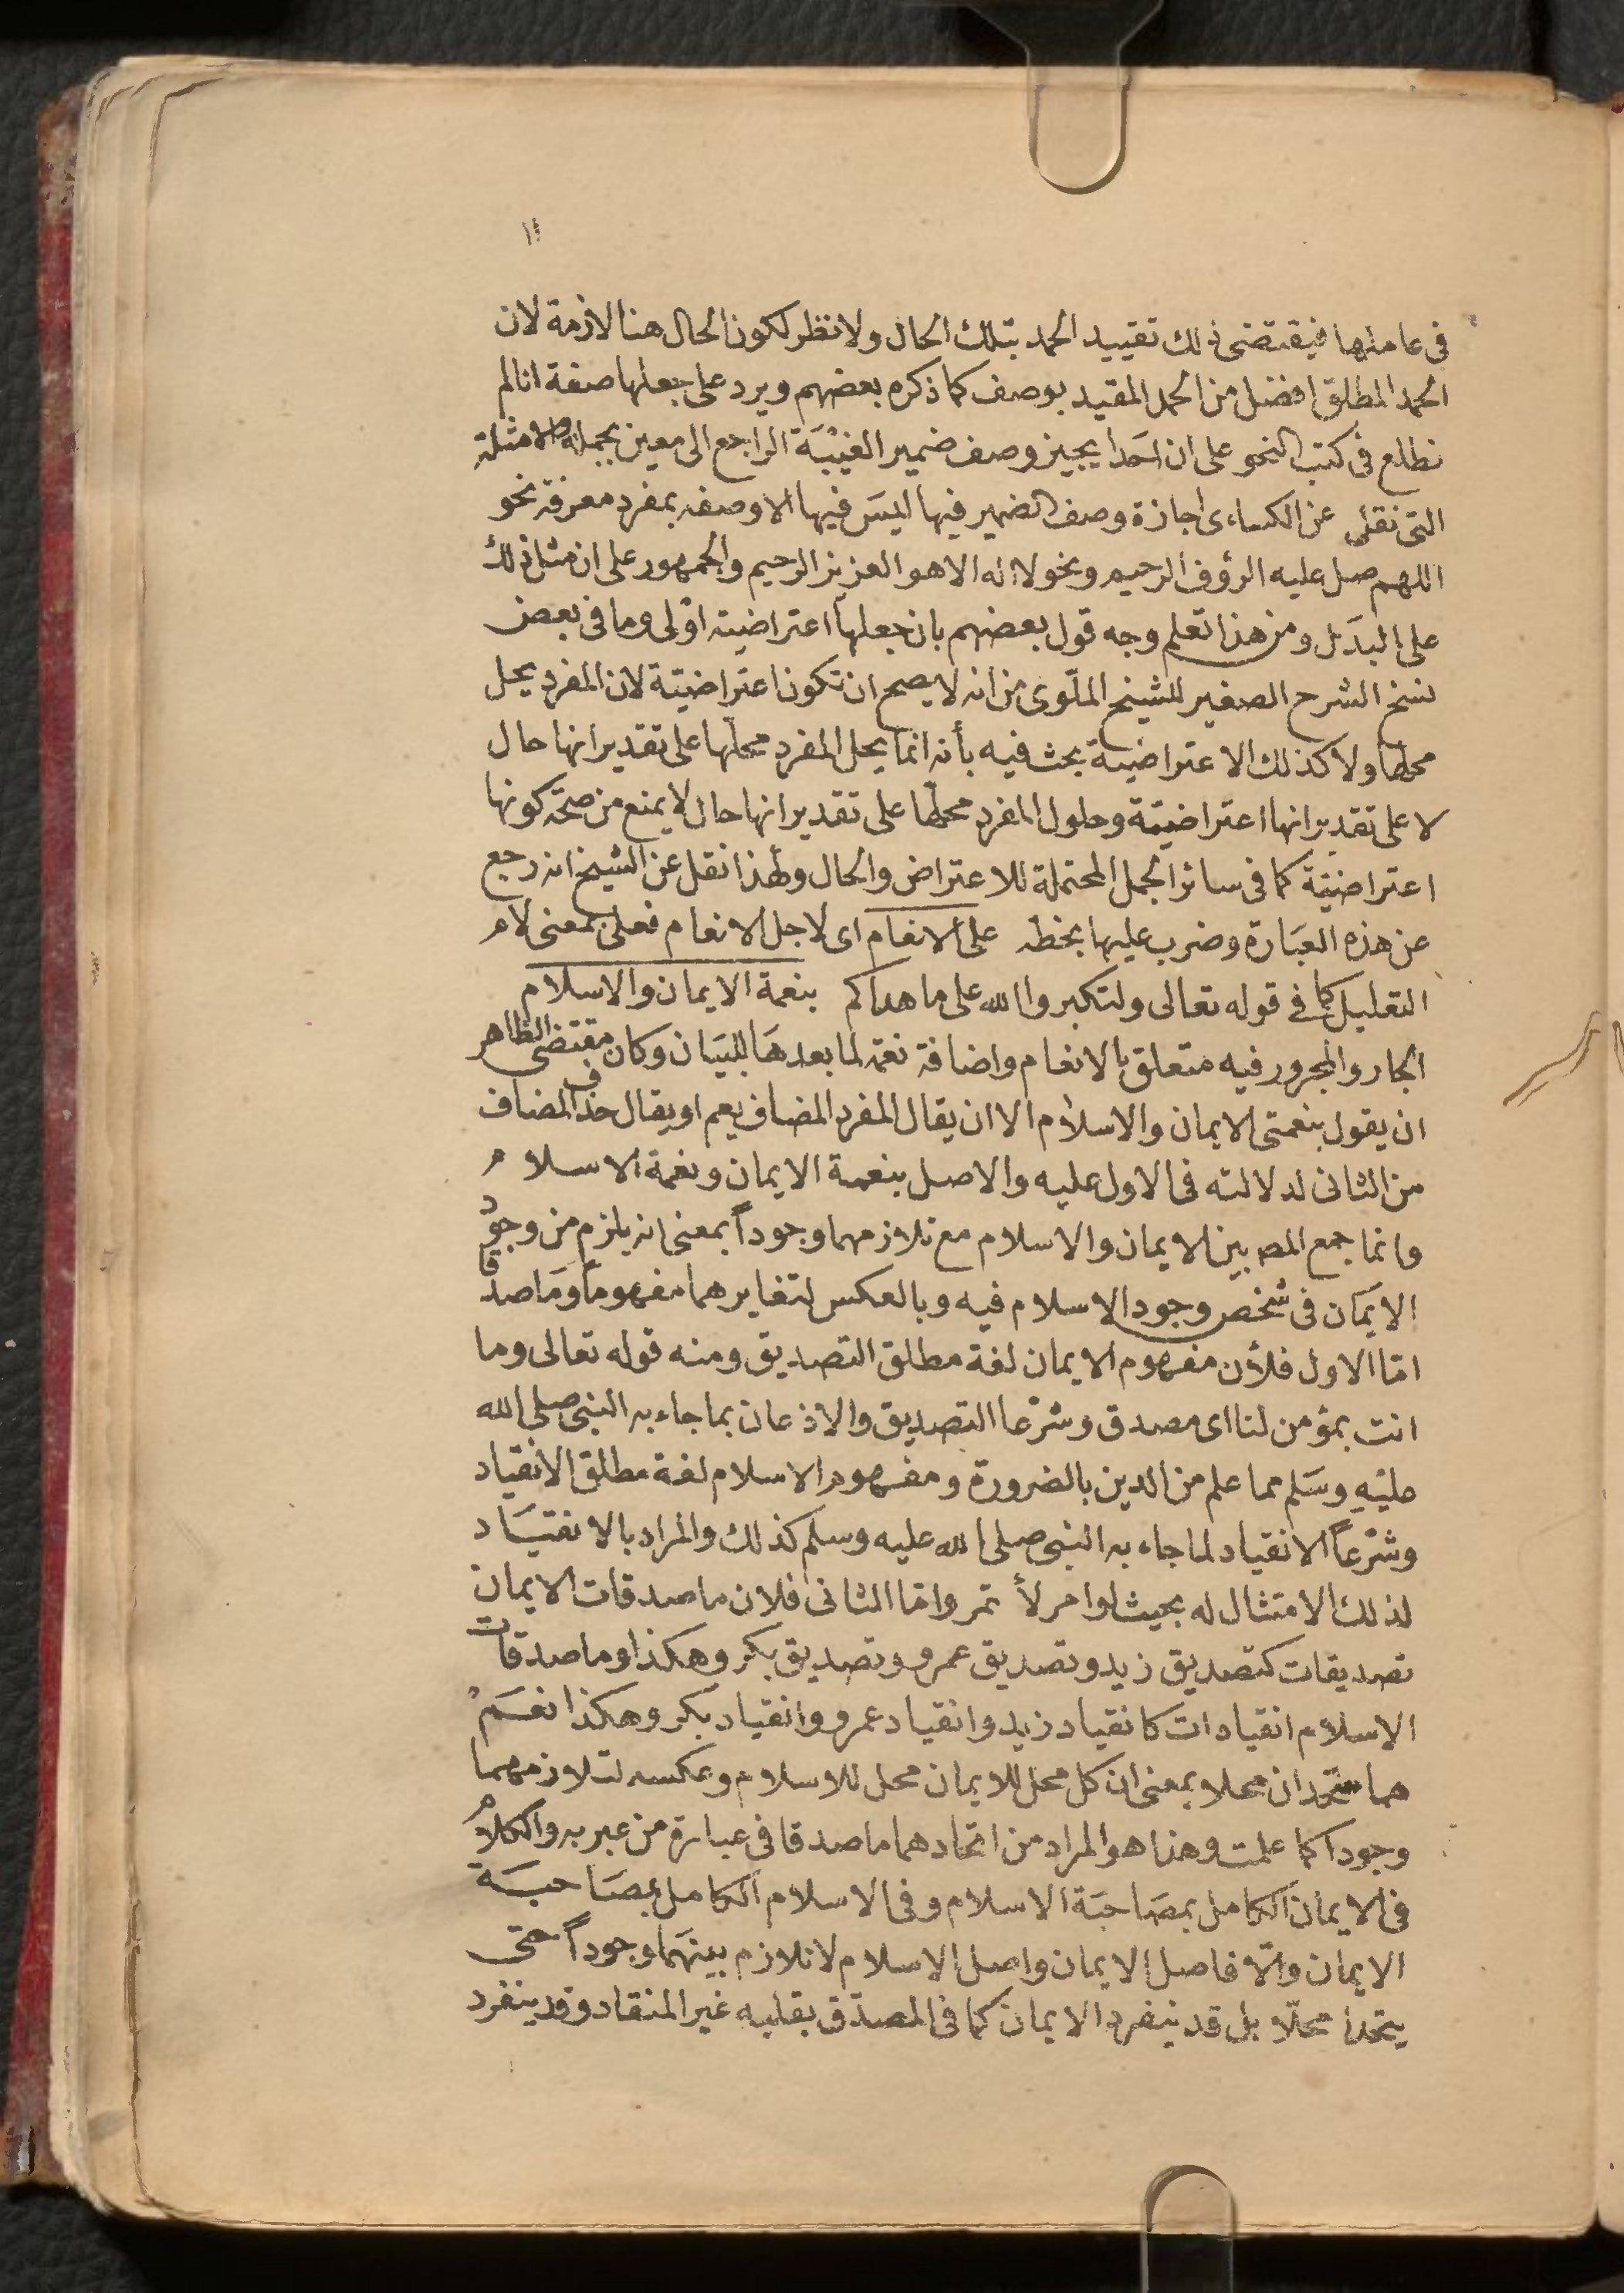 ١٤
فى عاملها فيقتضى ذلك تقييد الحمد بتلك الحال ولا نظر لكون الحال هنا لازمة لان
الحمد المطلق افضل من الحمد المقيد بوصف كما ذكره بعضهم ويرد على جعلها صفة انا لم
نطلع فى كتب النحو على ان احَدا يجيز وصف ضمير الغيْبَة الراجع الى معين بجملة والامثلة
التى نقل عن الكساءى اجازة وصف الضمير فيها ليسَ فيها الا وصفه بمفرد معرفة نحو
اللهم صل عليه الرؤف الرحيم ونحو لا اله الا هو العزيز الرحيم والجمهور على ان مثل ذلك
على البدَل ومن هذا تعلم وجه قول بعضهم بان جعلها اعتراضيّة اوْلى وما فى بعض
نسخ الشرح الصغير للشيخ الملّوى من انه لا يصح ان تكون اعتراضيّة لان المفرد يحل
محلها ولا كذلك الاعتراضية بحث فيه بأنه انما يحل المفرد محلها على تقدير انها حال
لا على تقدير انها اعتراضيّة وحلول المفرد محلها على تقدير انها حال لا يمنع من صحة كونها
اعتراضيّة كما فى سائر الجمل المحتملة للاعتراض والحال ولهذا نقل عن الشيخ انه رجع
عن هذه العبَارة وضرب عليها بخطه على الانعام اى لاجل الانعام فعلى بمعنى لام
التعليل كما فى قوله تعالى ولتكبروا الله على ما هداكم بنعمة الايمان والاسلام
الجار والمجرور فيه متعلق بالانعام واضافة نعمة لما بعدهَا للبيَان وكان مقتضى الظاهر
ان يقول بنعمتى الايمان والاسلام الا ان يقال المفرد المضاف يعم او يقال حذف المضاف
من الثانى لدلالته فى الاول عليه والاصل بنعمة الايمان ونعمة الاسلام
وانما جمع المص بين الايمان والاسلام مع تلازمهما وجوداً بمعنى انه يلزم من وجود
الايَمان فى شخص وجود الاسلام فيه وبالعكس لتغايرهما مفهوماً ومَاصدقا
امّا الاول فلأن مفهوم الايمان لغة مطلق التصديق ومنه قوله تعالى وما
انت بمؤمن لنا اى مصدق وشرْعا التصديق والاذعان بما جاء به النبى صلى الله
عليْهِ وسَلم مما علم من الدين بالضرورة ومفهوم الاسلام لغة مطلق الانقياد
وشرْعاً الانقياد لما جاء به النبى صلى الله عليه وسلم كذلك والمراد بالانقيَاد
لذلك الامتثال له بحيث لو امر لأتمر وامّا الثانى فلان ماصدقات الايمان
تصديقات كتصديق زيد وتصديق عمرو وتصديق بكر وهكذا وماصدقات
الاسلام انقيادات كانقياد زيد وانقياد عمرو وانقياد بكر وهكذا نعَمْ
هما متحدان محلا بمعنى ان كل محل للايمان محل للاسلام وعكسه لتلازمهما
وجوداً كما علمت وهذا هو المراد من اتحادهما ماصدقا فى عبارة من عبر به والكلام
فى الايمان الكامل بمصَاحبَة الاسلام وفى الاسلام الكامل بمصَاحبَة
الايمان والّا فاصل الايمان واصل الاسلام لا تلازم بينهَما وجوداً حتى
يتحدا محلّا بل قد ينفرد الايمان كما فى المصدّق بقلبه غير المنقاد وقد ينفرد